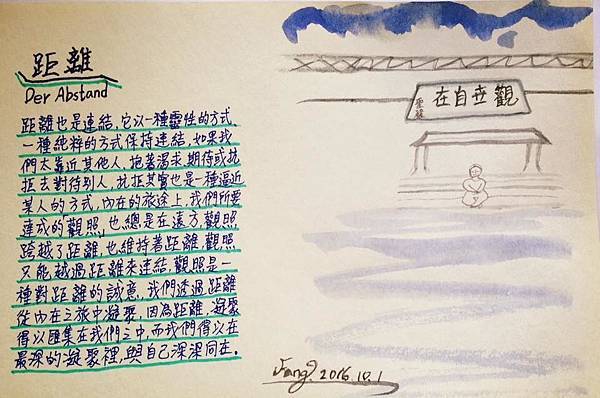 距離
Der Abstand
距離也是連結,它以一種靈性的方式,
一種純粹的方式保持連結,如果我
們太靠近其他人,抱著渴求、期待或抗
拒去對待別人,抗拒其實也是一種逼近
某人的方式,內在的旅途上,我們所要
達成的「觀照」,也總是在遠方,觀照
跨越了距離,也維持著距離,觀照
又能越過距離來連結,觀照是一
種對距離的誠意,我們透過距離
從內在之旅中凝聚,因為距離,凝聚
得以匯集在我們之中,而我們得以在
最深的凝聚裡,與自己深深同在。
觀世自在
Fang 2016.10.1